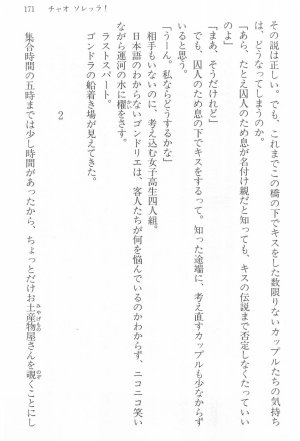 171 チャオ ソレッラ!
その説は正しい。でも、これまでこの橋の下でキスをした数限りないカップルたちの気持ち
は、どうなってしまうのか。
「あら、たとえ囚人のため息が名付け親だと知っても、キスの伝説まで否定しなくたっていい
のよ」
「まあ、そうだけれど」
でも、囚人のため息の下でキスをするって。知った途端に、考え直すカップルも少なからず
いると思う。
「うーん。私ならどうするかな」
相手もいないのに、考え込む女子高生四人組。
日本語のわからないゴンドリエは、客人たちが何を悩んでいるのかわからず、ニコニコ笑い
ながら運河の水に櫂をさす。
ラストスパート。
ゴンドラの船着き場が見えてきた。
2
集合時間の五時までは少し時間があったから、ちょっとだけお土産物屋さんを覗くことにし